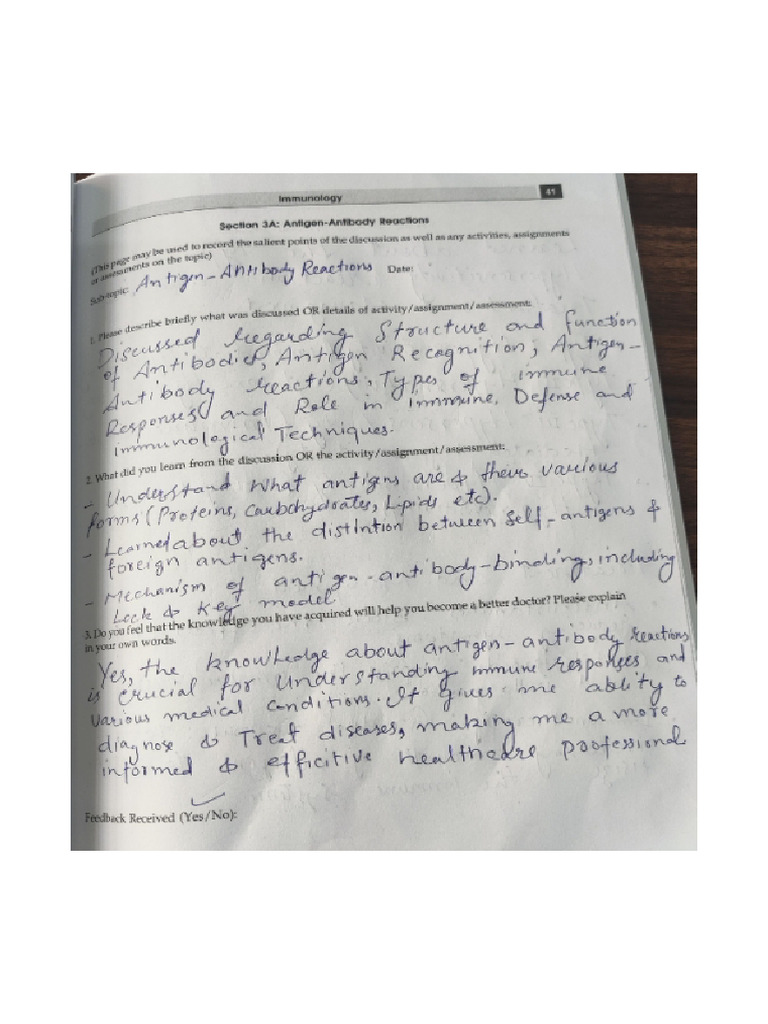 Immunology
41
Section 3A: Antigen-Antibody Reactions
(This page may be used to record the salient points of the discussion as well as any activities, assignments
or assessments on the topic)
Sub-topic: Antigen-Antibody Reactions Date:
1. Please describe briefly what was discussed OR details of activity/assignment/assessment:
Discussed regarding Structure and function
of Antibodies, Antigen Recognition, Antigen-
Antibody reactions, Types of immune
Responses and Role in Immune, Defense and
Immunological Techniques.
2. What did you learn from the discussion OR the activity/assignment/assessment:
- Understand what antigens are & their various
forms (Proteins, Carbohydrates, Lipids etc).
- Learned about the distintion between self-antigens &
foreign antigens.
- Mechanism of antigen-antibody-binding, including
Lock & key model
3. Do you feel that the knowledge you have acquired will help you become a better doctor? Please explain
in your own words.
Yes, the knowledge about antigen-antibody reactions
is crucial for understanding immune responses and
various medical conditions. It gives me ability to
diagnose & Treat diseases, making me a more
informed & efficitive healthcare professional
Feedback Received (Yes/No):